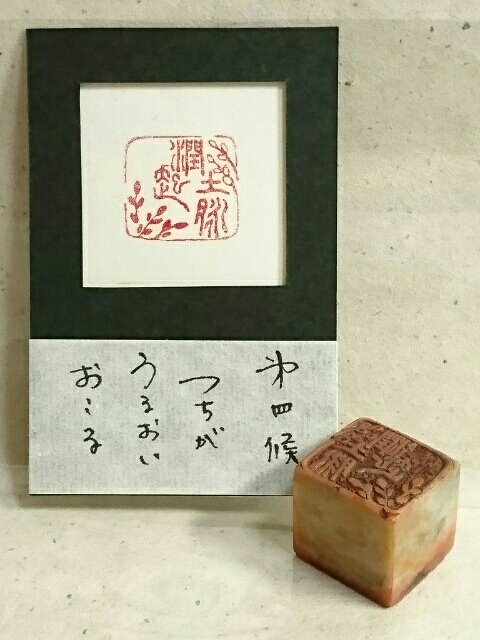 土脉
潤起
第四候
つちが
うるおい
おこる